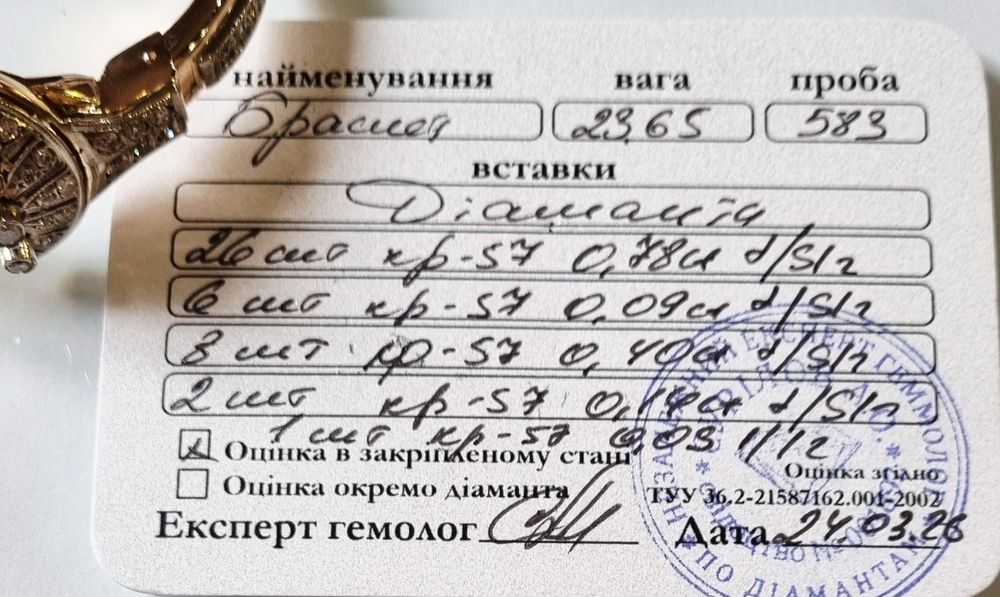 найменування вага проба
Браслет 23,65 583
вставки
Діаманти
26 шт кр-57 0,78ct d/SI2
6 шт кр-57 0,09ct d/SI2
8 шт кр-57 0,40ct d/SI2
2 шт кр-57 0,14ct d/SI2
1 шт кр-57 0,03 1/12
Оцінка в закріпленому стані
Оцінка згідно
Оцінка окремо діаманта
ТУУ 36.2-21587162.001-2002
Експерт гемолог Дата 24.03.26
НЕЗАЛЕЖНИЙ ЕКСПЕРТ ГЕММОЛОГ
ПО ДІАМАНТАМ